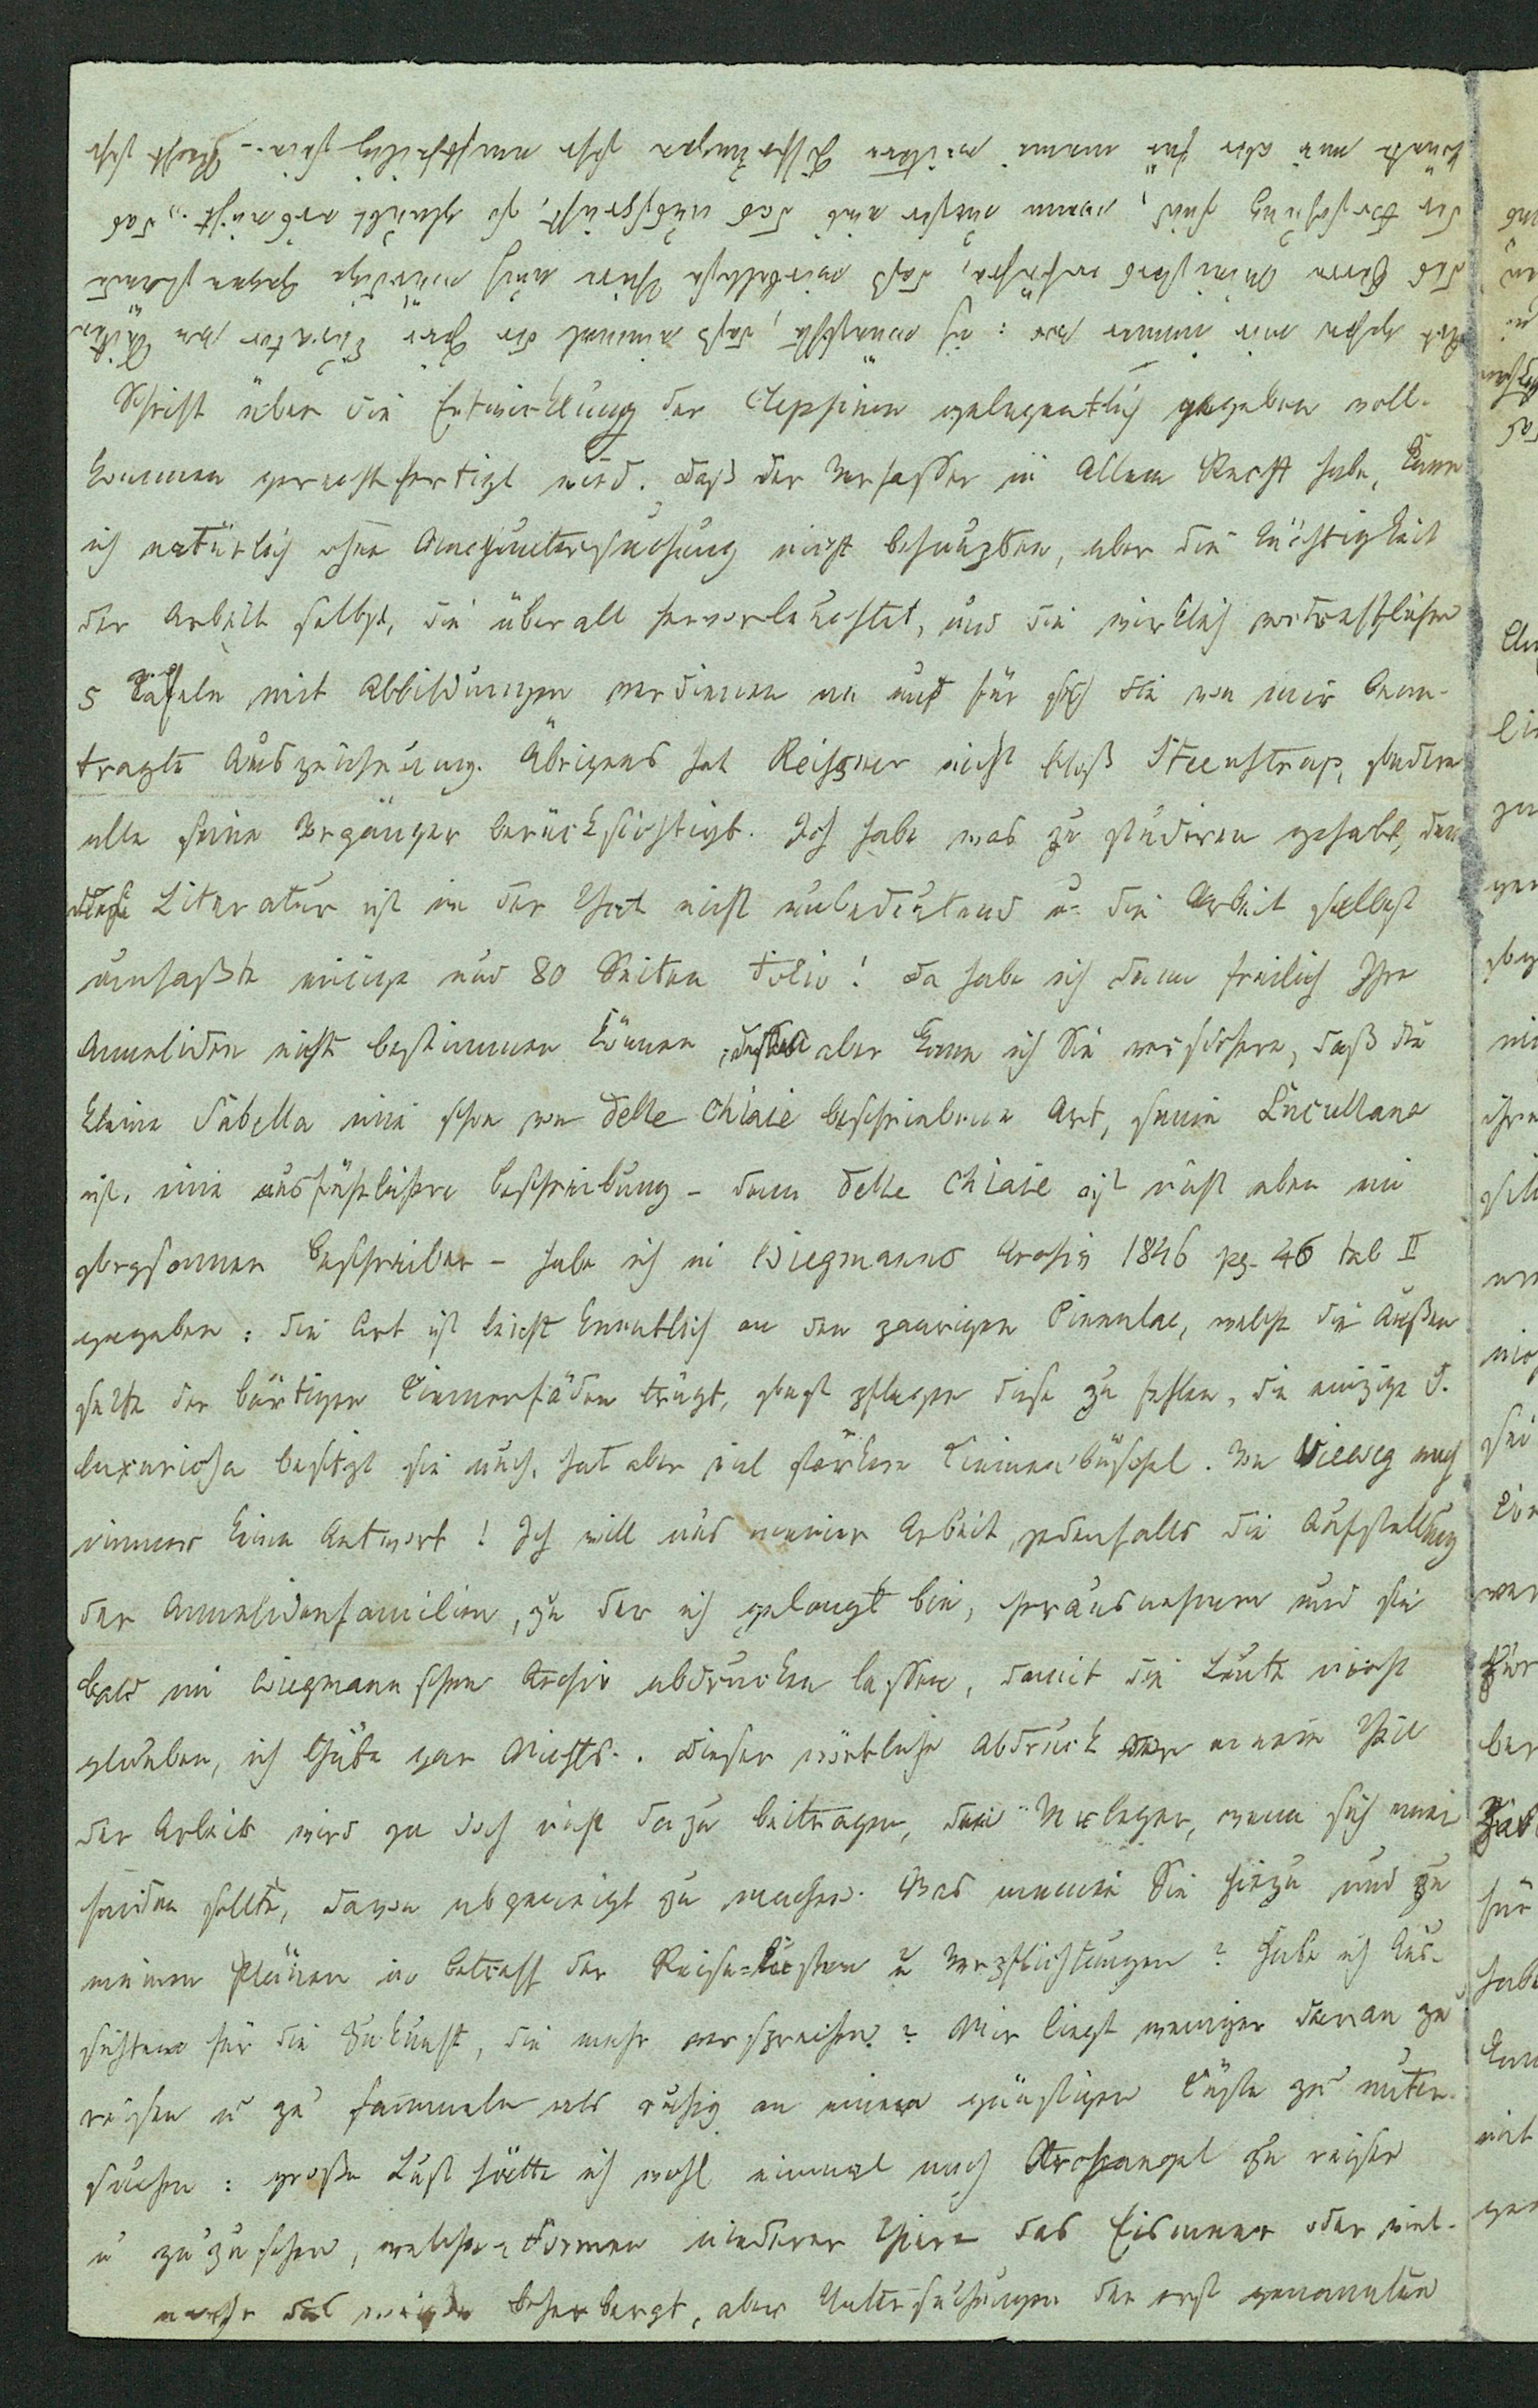 Schrift über die Entwicklung der Clepsinen gelegentlich gegeben voll-
kommen gerechtfertigt wird. Daß der Verfasser in Allem Recht habe, kann
ich natürlich ohne Nachuntersuchung nicht behaupten, aber die Tüchtigkeit
der Arbeit selbst, die überall hervorleuchtet, und die wirklich vortrefflichen
5 Tafeln mit Abbildungen verdienen an und für sich die von mir bean-
tragte Auszeichnung. Übrigens hat Reissner nicht bloß Steenstrup, sondern
alle seine Vorgänger berücksichtigt. Ich habe was zu studiren gehabt, denn
diese Literatur ist in der That nicht unbedeutend u. die Arbeit selbst
umfaßte einige und 80 Seiten Folio! Da habe ich denn freilich Ihre
Anneliden nicht bestimmen können, aber kann ich Sie versichern, daß die
kleine Sabella eine schon von Delle Chiaie beschriebene Art, seine Lucullana
ist. eine ausführlichere Beschreibung – denn Delle Chiaie ist nicht eben ein
sorgsamer Beschreiber – habe ich in Wiegmanns Archiv 1846 pg. 46 tab II
gegeben: die Art ist leicht kenntlich an den paarigen Pinnulae, welche die Außen
seite der bärtigen Kiemenfäden trägt, sonst pflegen diese zu fehlen, die einzige S.
luxuriosa besitzt sie auch, hat aber viel stärkere Kiemenbüschel. Von Vieweg noch
immer keine Antwort! Ich will aus meiner Arbeit jedenfalls die Aufstellung
der Annelidenfamilien, zu der ich gelangt bin, herausnehmen und sie
bald im Wiegmannschen Archiv abdrucken lassen, damit die Leute nicht
glauben, ich thäte gar Nichts. Dieser wörtliche Abdruck Theil
der Arbeit wird ja doch nicht dazu beitragen, den Verleger, wenn sich einer
finden sollte, davon abgeneigt zu machen. Was meinen Sie hiezu und zu
meinen Plänen in Betreff der Reise=Kosten u Verpflichtungen? Habe ich Aus-
sichten für die Zukunft, die mehr versprechen? Mir liegt weniger daran zu
reisen u zu sammeln als ruhig an einer günstigen Küste zu unter-
suchen: große Lust hätte ich wohl einmal nach Archangel zu reisen
u zuzusehen, welche Formen niederer Thiere das Eismeer oder viel-
mehr das weiße beherbergt, aber Untersuchungen der erst genannten
Art gehen mir immer vor: ich wünschte, daß einmal der Herr Curator von
das Herrn Ministers erführe, daß wirbellose Thiere auch würdige Gegenstände
der Forschung sind, wenn anders das ausspricht, so schickt nicht, das
könnte mir aber für meine weitere sehr nachtheilig sein. – Recht sehr